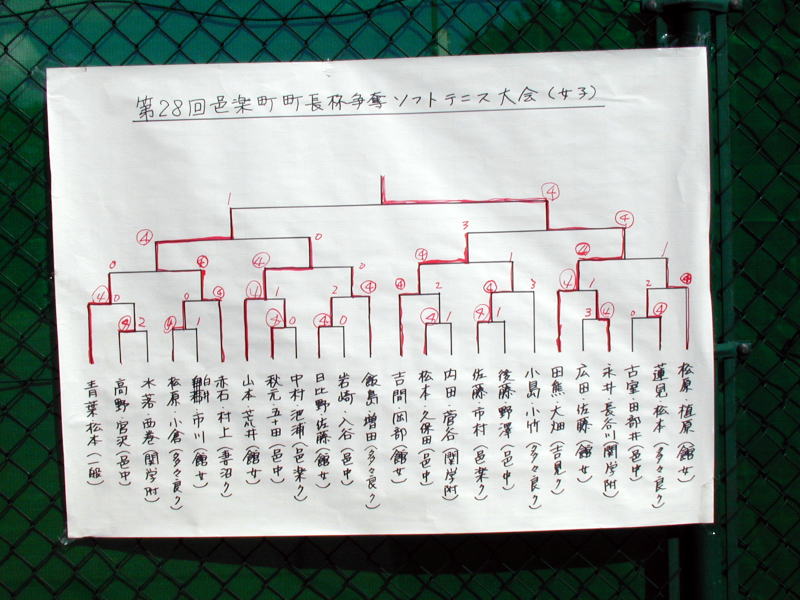 第28回邑楽町町長杯争奪ソフトテニス大会(女子)
④
1
④
3
④
0
④
④
0
④
1
0
④
④
0
④
2
④
④
2
④
3
④
1
2
④
④
2
④
1
④
0
④
0
④
1
④
1
3
④
0
④
青葉・松本(一般)
高野・宮沢(邑中)
水著・西巻(関学附)
松原・小倉(多々良ク)
市川(館女)
赤石・村上(妻沼ク)
山本・荒井(館女)
秋元・五十田(邑中)
中村・池浦(邑楽ク)
日比野・佐藤(館女)
岩崎・入谷(邑中)
飯島・増田(多々良ク)
吉間・岡部(館女)
松本・久保田(邑中)
内田・菅谷(関学附)
佐藤・市村(邑楽ク)
後藤・野澤(邑中)
小島・小竹(多々良ク)
田熊・大畑(吉見ク)
広田・佐藤(館女)
永井・長谷川(関学附)
古室・田部井(邑中)
蓮見・松本(多々良ク)
松原・植原(館女)